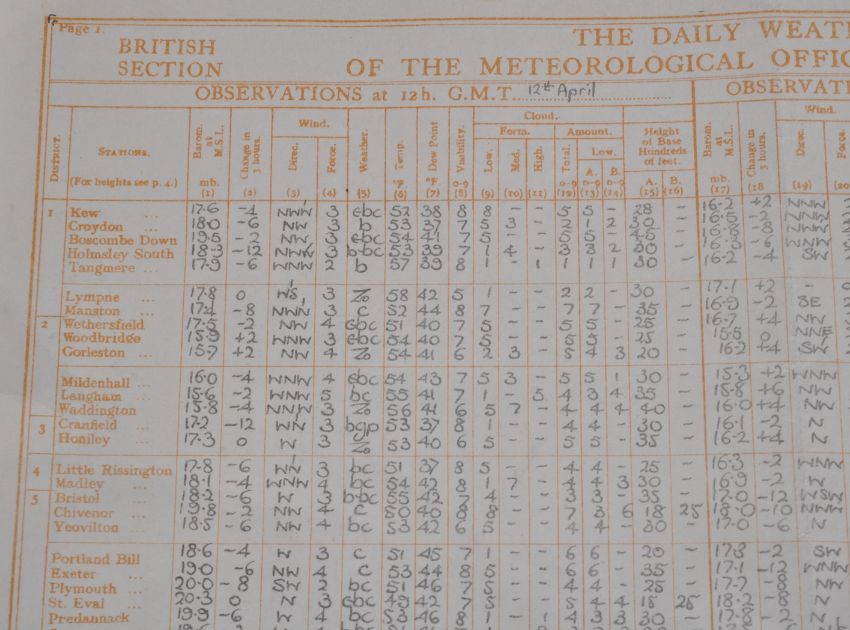 Page 1.
BRITISH SECTION
THE DAILY WEAT
OF THE METEOROLOGICAL OFFIC
OBSERVATIONS at 12h. G.M.T. 12th April
OBSERVATI
DISTRICT.
STATIONS.
(For heights see p. 4.)
Barom. at M.S.L. mb. (1)
Change in 3 hours. (2)
Wind.
Direc. (3)
Force. (4)
Weather. (5)
Temp. °F (6)
Dew Point °F (7)
Visibility. 0-9 (8)
Cloud.
Form.
Low. (9)
Med. (10)
High. (11)
Amount.
Total. 0-9 (12)
Low.
A. 0-9 (13)
B. 0-9 (14)
Height of Base Hundreds of feet.
A. (15)
B. (16)
Barom. at M.S.L. mb. (17)
Change in 3 hours. (18
Wind.
Direc. (19)
Force. (20
1 Kew ... 17.6 -4 NNW 3 52 38 8 8 - - 5 5 - 28 - 16.2 +2 NNW
Croydon ... 18.0 -6 NW 3 b 53 37 7 5 3 - 2 1 2 30 - 16.5 -2 NNW
Boscombe Down 19.5 -2 NW 3 54 41 7 5 - - 5 5 - -
Holmsley South 18.3 -12 3 53 39 7 1 4 - 3 3 2 30 -
Tangmere ... 17.9 -6 WNW 2 b 57 39 8 1 - 1 1 1 1 30 - 16.2 -4 SW
Lympne ... 17.8 0 3 58 42 5 1 - - 2 2 - 30 - 17.1 +2 -
Manston ... 17.4 -8 NNW 3 c 52 44 8 7 - - 7 7 - 35 - 16.9 -2 SE
2 Wethersfield 17.5 -2 NW 4 51 40 7 5 - - 5 5 - 25 - 16.7 +4 NW
Woodbridge 15.9 +2 WNW 3 54 40 7 5 - - 5 5 - 25 - 15.5 0 NNE
Gorleston ... 15.7 +2 NW 4 54 41 6 2 3 - 5 4 3 20 - 16.2 +4 SW
Mildenhall ... 16.0 -4 WNW 4 54 43 7 5 3 - 5 5 1 30 - 15.3 +2 WNW
Langham ... 15.6 -2 WNW 5 bc 55 41 7 1 - 5 4 3 4 35 - 15.8 +6 NW
Waddington 15.8 -4 3 56 41 6 5 7 - 4 4 4 40 - 16.0 +4 NW
3 Cranfield ... 17.2 -12 3 53 37 8 1 - - 4 4 - 30 - 16.1 -2 N
Honiley ... 17.3 0 N 3 53 40 6 5 - - 5 5 - 35 - 16.2 +4 N
4 Little Rissington 17.8 -6 3 bc 51 37 8 5 - - 4 4 - 25 - 16.3 -2 WNW
Madley ... 18.1 -4 4 bc 54 42 8 1 7 - 4 4 3 30 - 16.9 -2
5 Bristol ... 18.2 -6 3 55 42 7 4 - - 3 3 - 35 - 17.0 -12 WSW
Chivenor ... 19.8 -2 NW 4 c 50 40 8 8 - - 7 3 6 18 25 18.0 -10 NNW
Yeovilton ... 18.5 -6 NW 4 bc 53 42 6 5 - - 4 4 - 30 - 17.0 -6 N
Portland Bill 18.6 -4 3 c 51 45 7 1 - - 6 6 - 20 - 17.3 -2 SW
Exeter ... 19.0 -6 NW 4 c 53 44 8 5 - - 6 6 - 35 - 17.1 -12 WNW
Plymouth ... 20.0 -8 SW 2 bc 51 46 7 5 - - 4 4 - 25 - 17.7 -8 NW
St. Eval ... 20.3 0 N 3 49 42 7 5 - - 5 4 4 18 25 18.2 -8 N
Predannack 19.9 -6 4 bc 53 46 8 1 - 1 4 3 3 30 - 17.8 -2 N